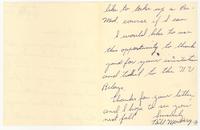 like to take up a Pre-
Med. course if I can
I would like to use
this opportunity to thank
you for your invitation
and ticket to the
Relays.
Thanks for your letter
and I hope to see you
next fall.
Sincerely
Bill